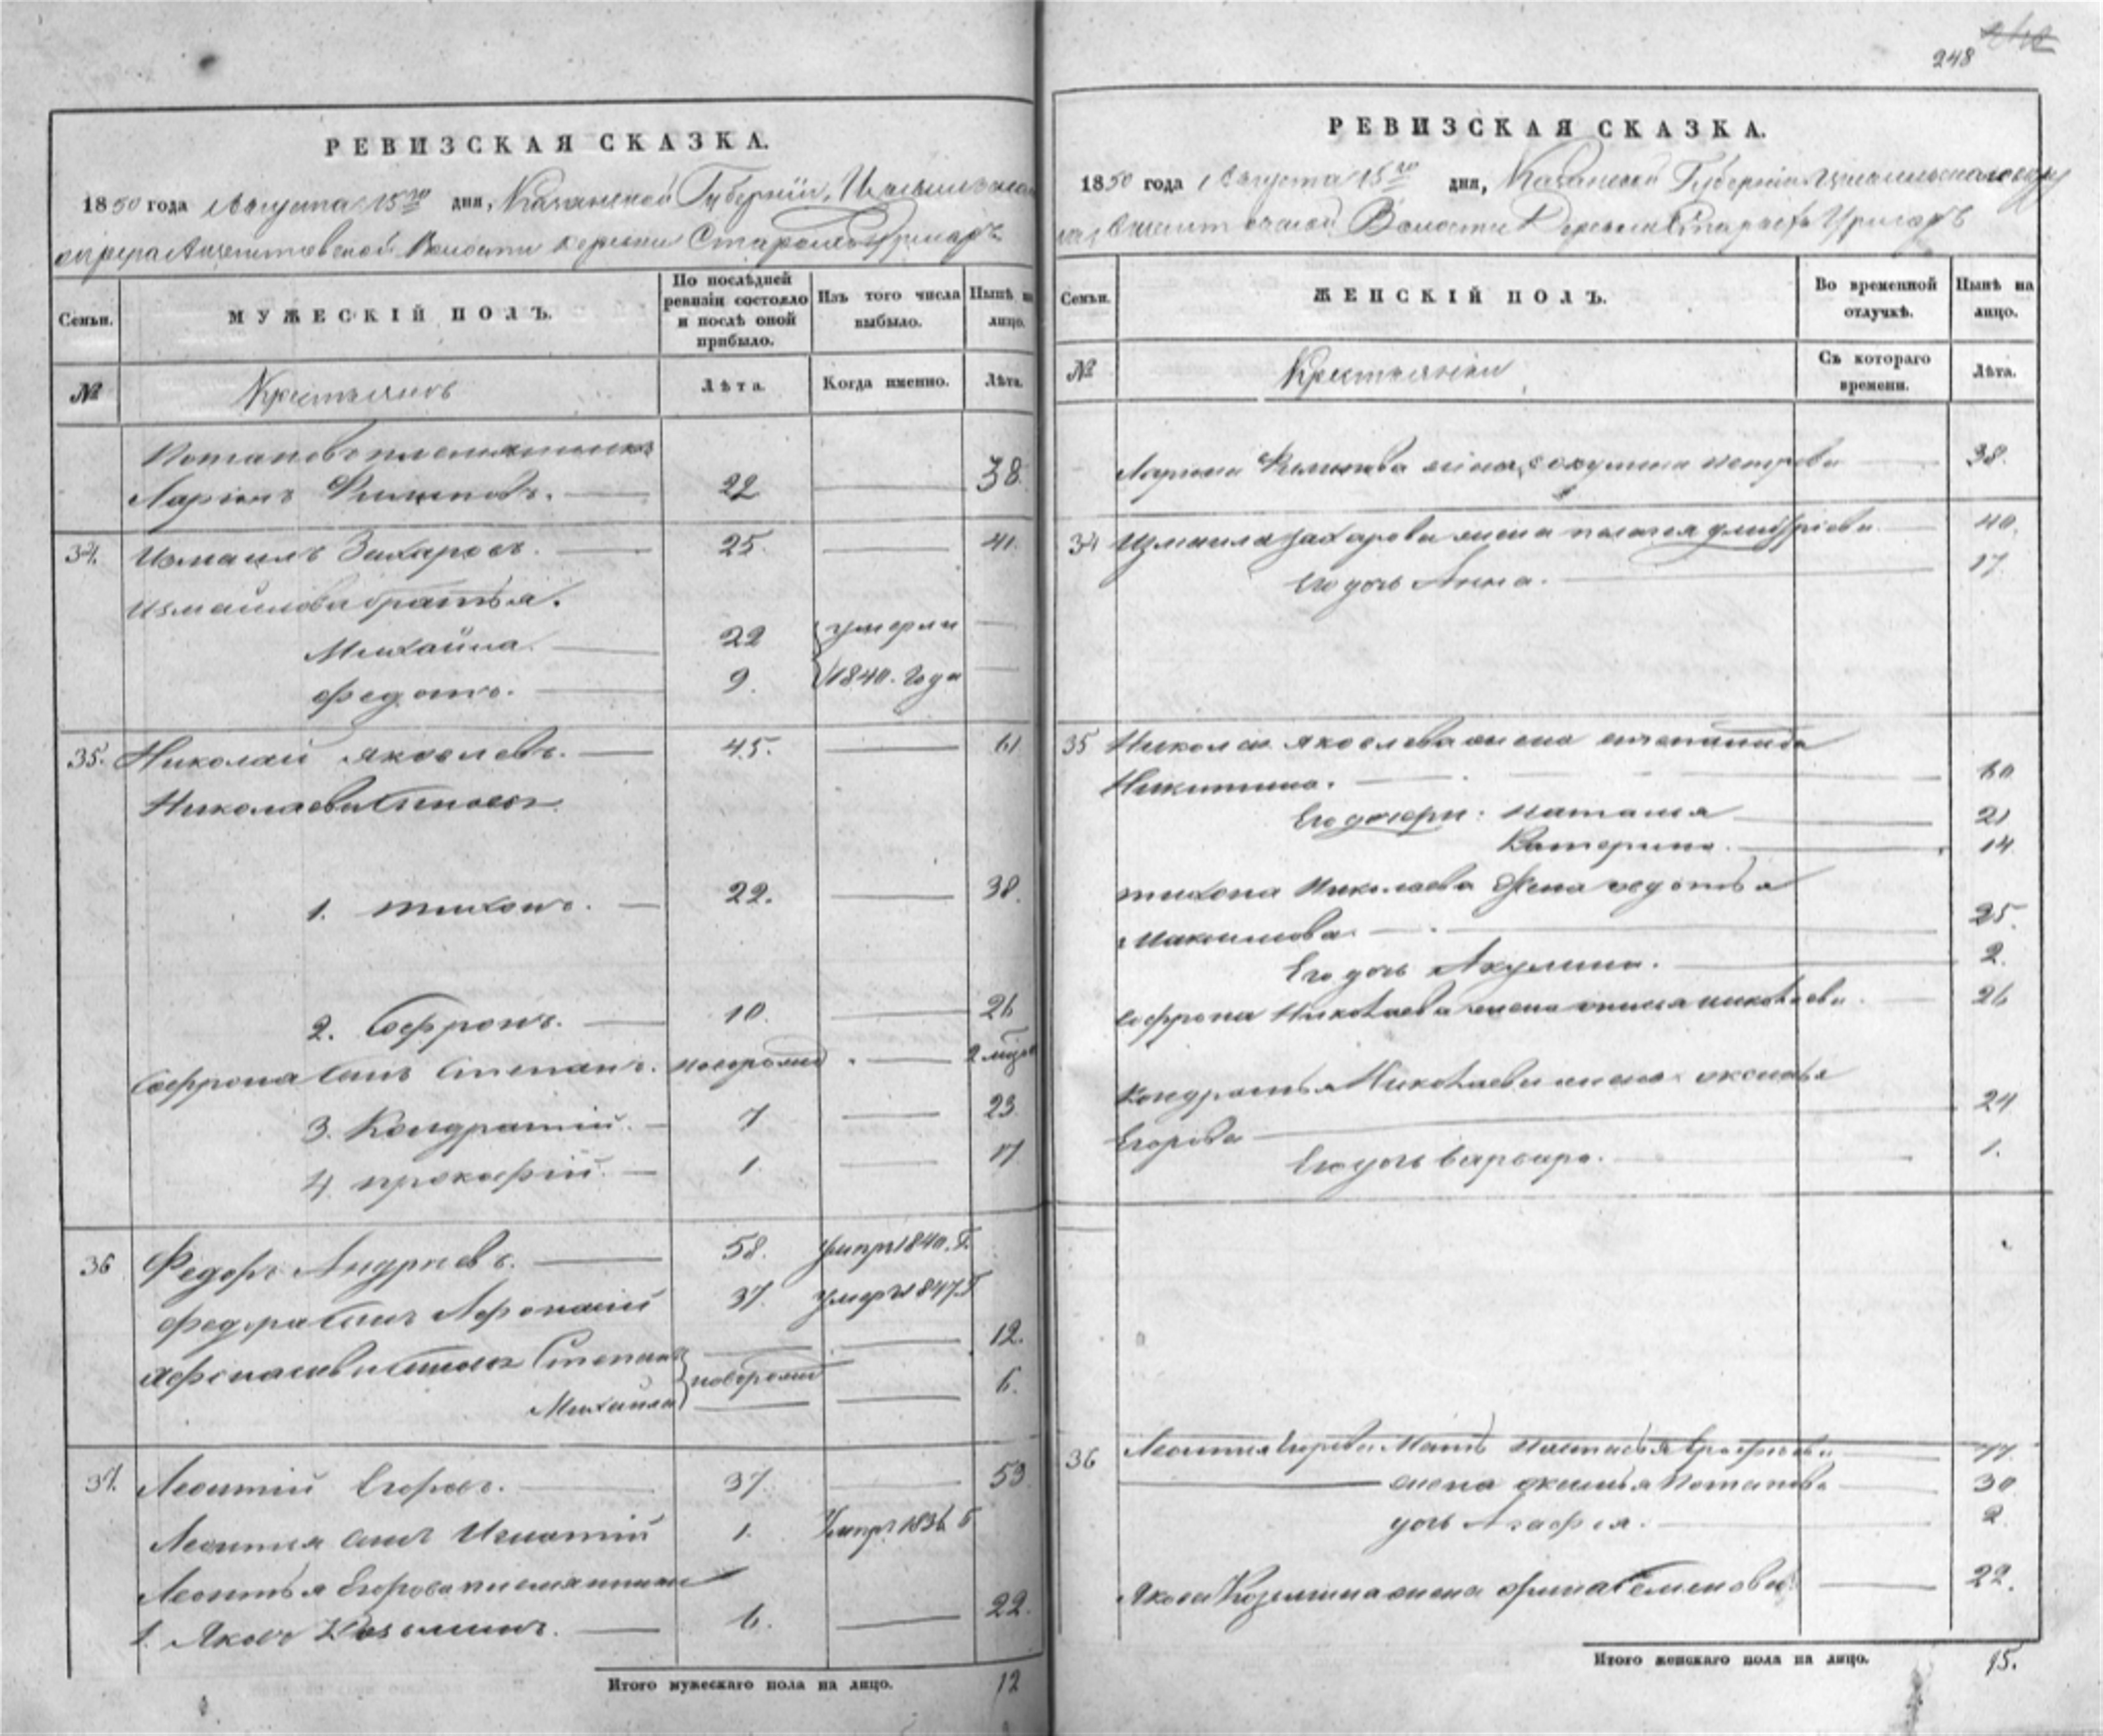 248
РЕВИЗСКАЯ СКАЗКА.
1850 года Августа 15го дня, Казанской Губернiи, Цивильскаго
округа Волости деревни Старой Урмаръ
Семьи.
МУЖЕСКIЙ ПОЛЪ.
По послѣдней ревизiи состояло и послѣ оной прибыло.
Изъ того числа выбыло.
Нынѣ на лицо.
№
Крестьяновъ
Лѣта.
Когда именно.
Лѣта.
Потаповъ племянникъ
Ларiонъ Филиповъ. 22 38.
34. Измаилъ Захаровъ. 25. 41.
Измаилова братья.
Михайла. 22 умерли
Федотъ. 9. 1840. Года
35. Николай Яковлевъ. 45. 61
Николаевы Сыновья
1. Тихонъ. 22. 38.
2. Софронъ. 10. 26
Софрона Сынъ Степанъ. новорожд. 2 мѣся
3. Кондратiй. 7 23
4. Прокофiй. 1. 17
36 Федоръ Андреевъ. 58. умеръ 1840. Г.
Федора Сынъ Афонасiй 37. умеръ 1847. Г
Афонасьевы Сыновья Степанъ новорожд 12.
Михайла 6.
37. Леонтiй Егоровъ. 37. 53
Леонтия сынъ Игнатiй 1. Умеръ 1836 Г
Леонтья Егорова племянники
1. Яковъ Козьминъ. 6. 22.
Итого мужескаго пола на лицо. 12
РЕВИЗСКАЯ СКАЗКА.
1850 года Августа 15го дня, Казанской Губернiи Цивильскаго окру
Волости Деревни Старой Урмаръ
Семьи.
ЖЕНСКIЙ ПОЛЪ.
Во временной отлучкѣ.
Нынѣ на лицо.
№
Крестьянки
Съ котораго времени.
Лѣта.
Лариона Филипова жена Акулина Петрова 38.
34 Измаила Захарова жена Пелагея Дмитрiева 40.
Его дочь Анна. 17
35 Николая Яковлева жена Степанида
Никитина. 60
Его дочери: Наталия 21
Катерина. 14
Тихона Николаева Жена Федотья
Максимова. 25.
Его дочь Акулина. 2.
Софрона Николаева жена Николаева. 26
Кондратья Николаева жена Оксинья
Егорова 24
Его дочь Варвара. 1.
36 Леонтия Егорова Мать Настасья 77.
жена Оксинья Потапова 30
дочь Агафья. 2
Якова Козьмина жена Орина Семенова 22.
Итого женскаго пола на лицо. 15.